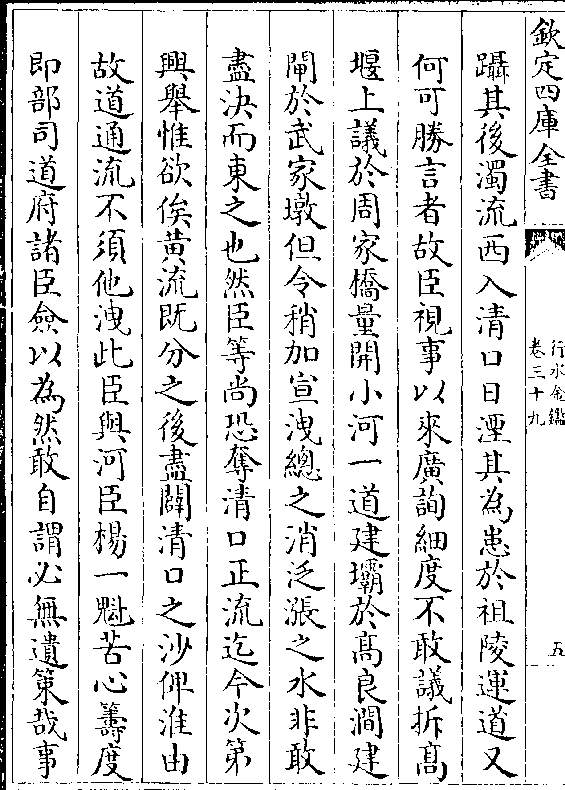 欽定四庫全書
行水金鑑
卷三十九
五
躡其後濁流西入清口日湮其為患於祖陵運道又
何可勝言者故臣視事以來廣詢細度不敢議拆髙
堰上議於周家橋量開小河一道建壩於髙良澗建
閘於武家墩但令稍加宣洩總之消泛漲之水非敢
盡決而東之也然臣等尚恐奪清口正流迄今次第
興舉惟欲俟黄流既分之後盡闢清口之沙俾淮由
故道通流不須他洩此臣與河臣楊一魁苦心籌度
即部司道府諸臣僉以為然敢自謂必無遺策哉事